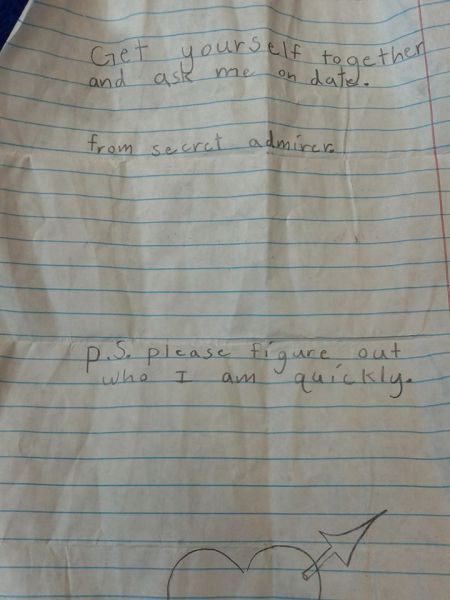 Get yourself together
and ask me on date.
from secret admirer.
P.S. please figure out
who I am quickly.